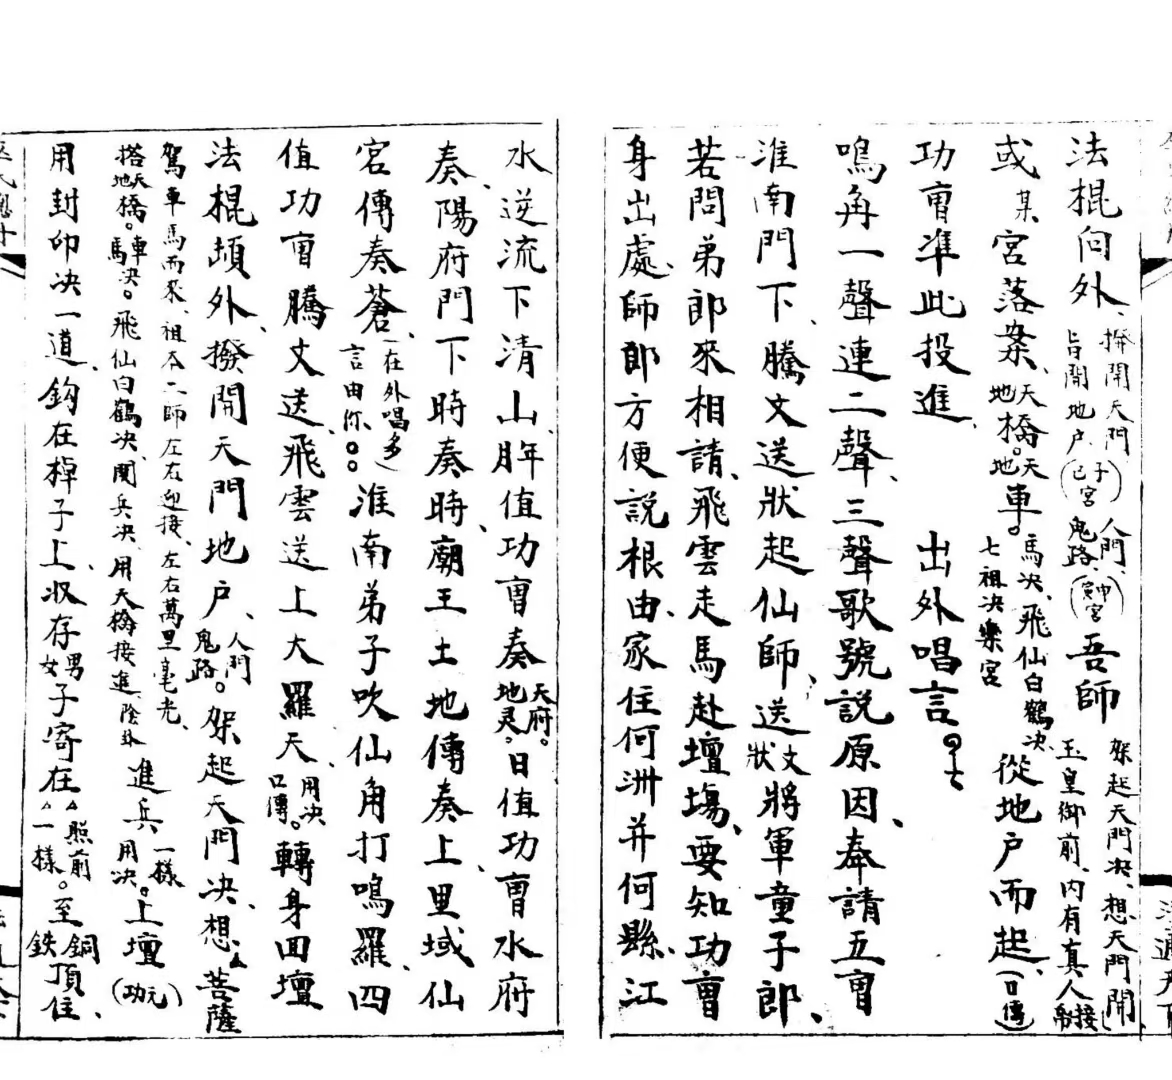 法棍向外、拚開天門旨開地户(子巳宮)人門、鬼路、(申寅宮)吾師架起天門决、想天門開玉皇御前、内有真人接
或某宮落案、天地橋。天地車。馬决、飛仙白鶴决、七祖决樂宮從地户而起、(口傳)
功曹準此投進、 出外唱言。
鳴角一聲連二聲、三聲歌號説原因、奉請五曹
淮南門下、騰文送狀起仙師、送文狀將軍童子郎、
若問弟郎來相請、飛雲走馬赴壇塲、要知功曹
身出處、師郎方便説根由、家住何洲并何縣、江
水逆流下清山、年值功曹奏天府。地灵。日值功曹水府
奏、陽府門下時奏時、廟王土地傳奏上、里域仙
宮傳奏蒼、(在外唱多言由你。。。)淮南弟子吹仙角打鳴羅、四
值功曹騰文送、飛雲送上大羅天、用决口傳。轉身回壇
法棍頭外、撥開天門地户、人門鬼路。架起天門决、想菩薩
駕車馬而來、祖本二師左右迎接、左右萬里毫光、
搭天地橋。車馬决。飛仙白鶴决、関兵决、用天橋接進、陰卦進兵一樣用决。上壇(功元)
用封印决一道、鈎在棹子上、收存男女子寄在照前一樣。至銅鉄頂住、